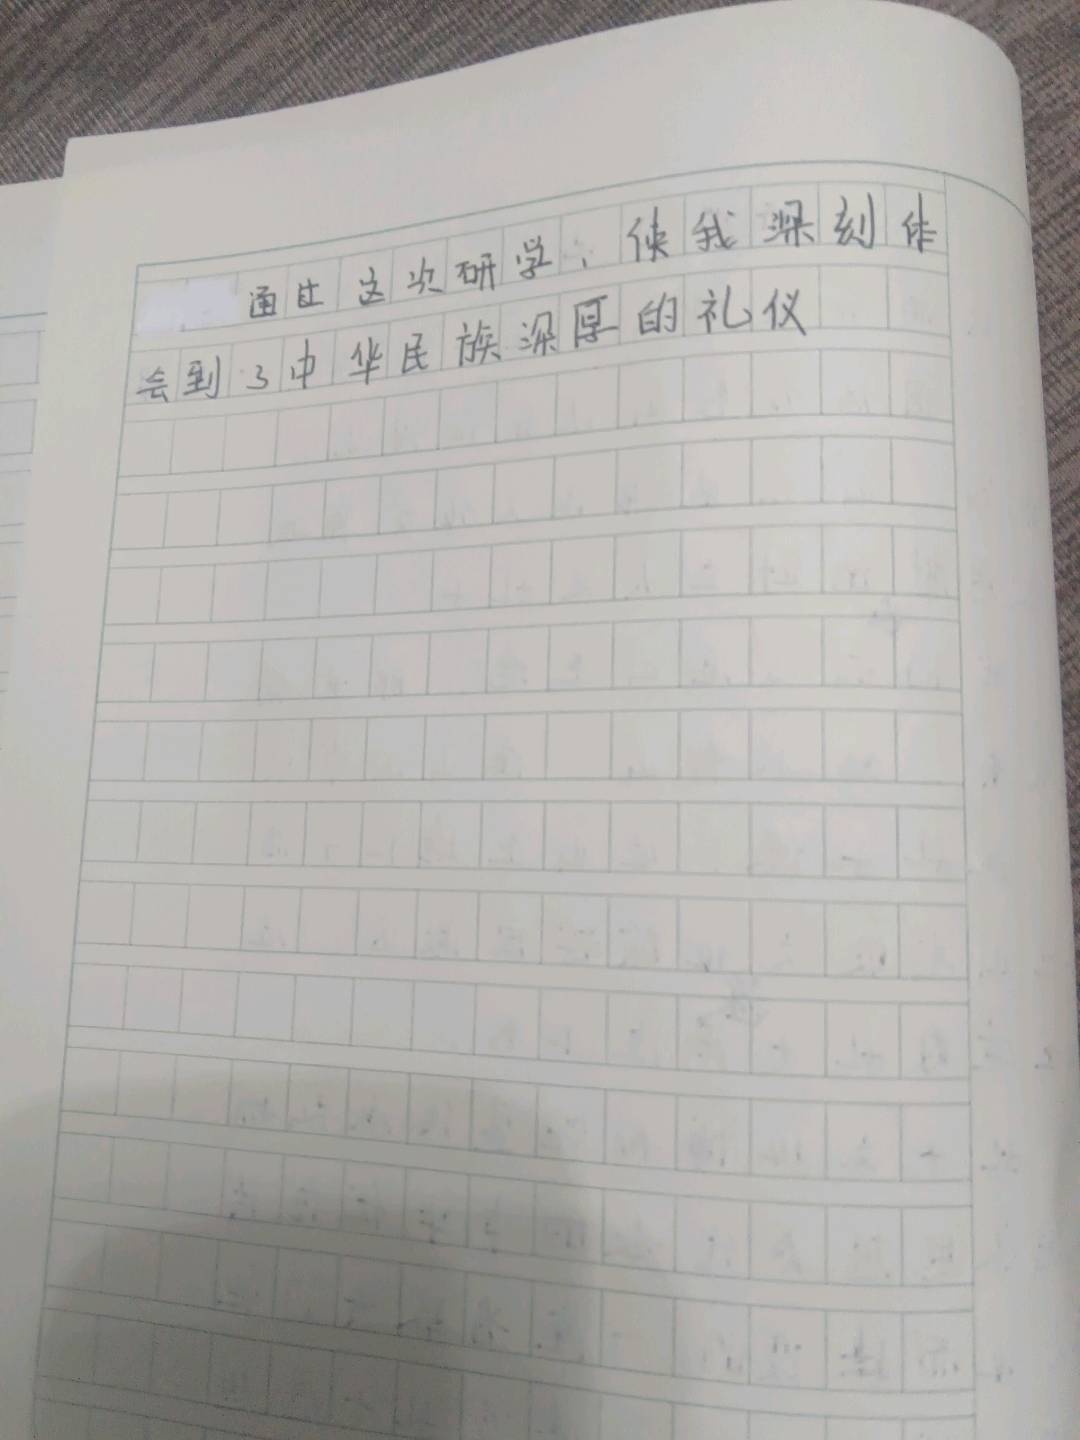 通过这次研学,使我深刻体
会到了中华民族深厚的礼仪